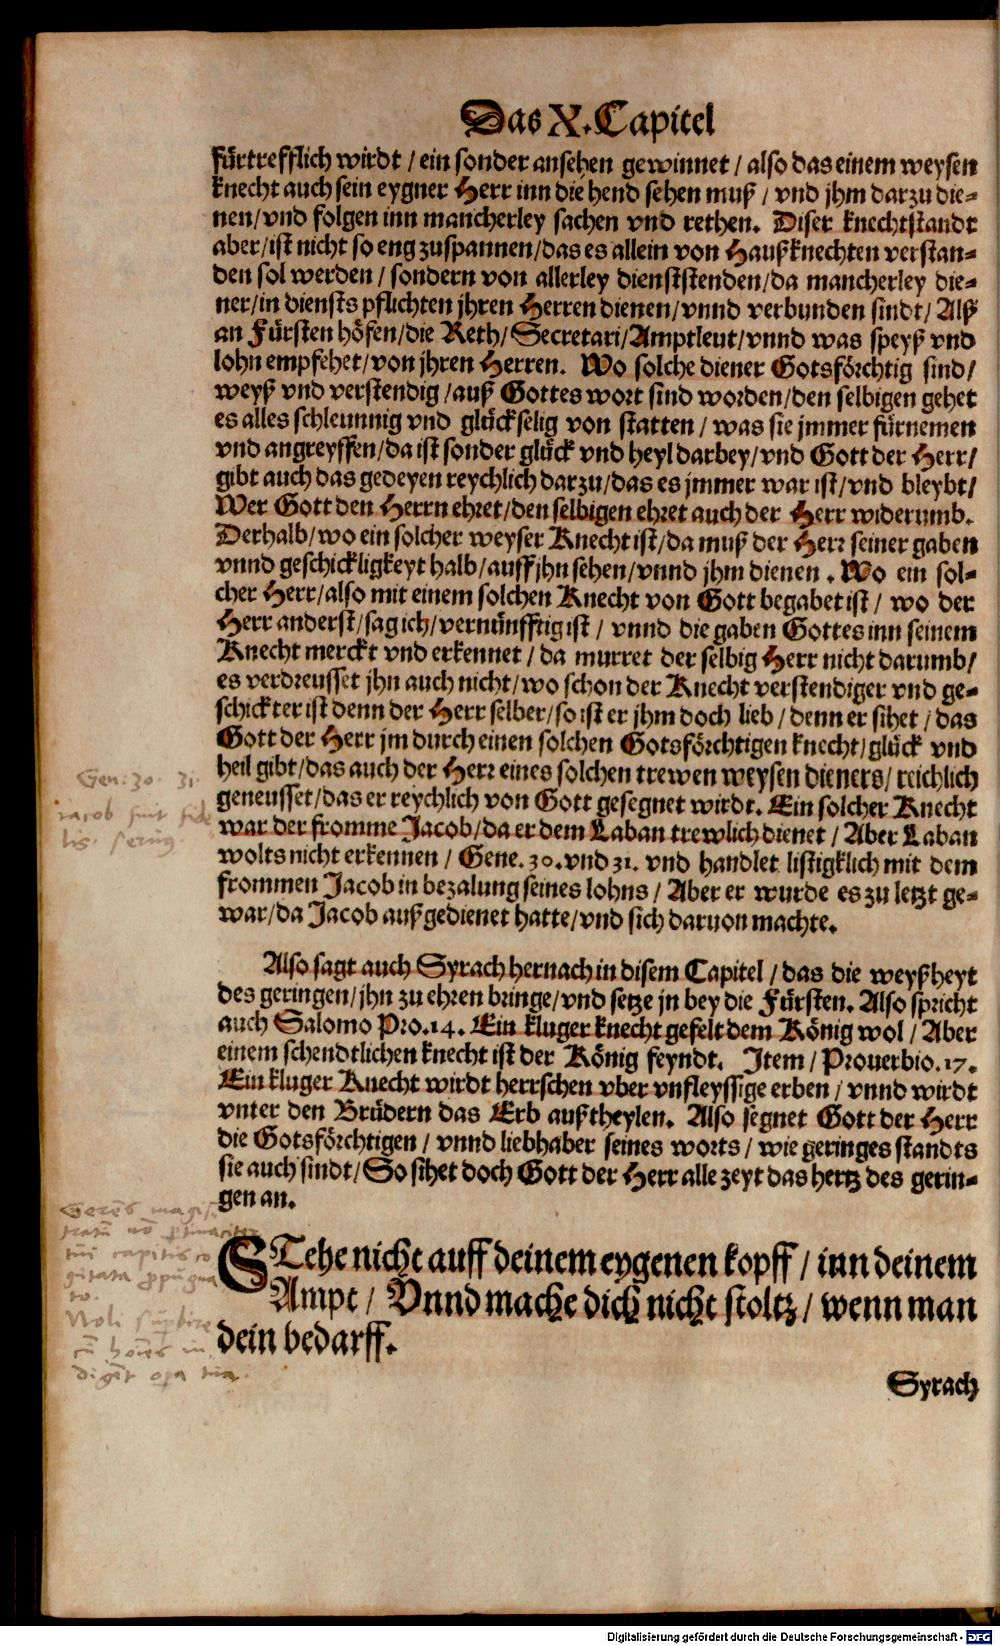 Das X. Capitel
fürtrefflich wirdt / ein sonder ansehen gewinnet / also das einem weysen
knecht auch sein eygner Herr inn die hend sehen muß / vnd jhm darzu die-
nen/vnd folgen inn mancherley sachen vnd rethen. Diser knechtstandt
aber/ist nicht so eng zuspannen/das es allein von Haußknechten verstan-
den sol werden / sondern von allerley dienststenden/da mancherley die-
ner/in diensts pflichten jhren Herren dienen/vnnd verbunden sindt/ Alß
an Fürsten höfen/die Reth/ Secretari/Amptleut/vnnd was speyß vnd
lohn empfehet/von jhren Herren. Wo solche diener Gotsförchtig sind/
weyß vnd verstendig/auß Gottes wort sind worden/den selbigen gehet
es alles schleunnig vnd glückselig von statten / was sie jmmer fürnemen
vnd angreyffen/da ist sonder glück vnd heyl darbey/vnd Gott der Herr/
gibt auch das gedeyen reychlich darzu/das es jmmer war ist/vnd bleybt/
Wer Gott den Herrn ehret/den selbigen ehret auch der Herr widerumb.
Derhalb/wo ein solcher weyser Knecht ist/da muß der Herr seiner gaben
vnnd geschickligkeyt halb/auff jhn sehen/vnnd jhm dienen. Wo ein sol-
cher Herr/also mit einem solchen Knecht von Gott begabet ist / wo der
Herr anderst/sag ich/vernünfftig ist / vnnd die gaben Gottes inn seinem
Knecht merckt vnd erkennet / da murret der selbig Herr nicht darumb/
es verdreusset jhn auch nicht/wo schon der Knecht verstendiger vnd ge-
schickter ist denn der Herr selber/so ist er jhm doch lieb / denn er sihet / das
Gott der Herr jm durch einen solchen Gotsförchtigen knecht/glück vnd
heil gibt/das auch der Herr eines solchen trewen weysen dieners/ reichlich
geneusset/das er reychlich von Gott gesegnet wirdt. Ein solcher Knecht
war der fromme Jacob/da er dem Laban trewlich dienet / Aber Laban
wolts nicht erkennen / Gene. 30. vnd 31. vnd handlet listigklich mit dem
frommen Jacob in bezalung seines lohns / Aber er wurde es zu letzt ge-
war/da Jacob auß gedienet hatte/vnd sich daruon machte.
Gen: 30. 31.
iacob fuit fide
lis. seruus.
Also sagt auch Syrach hernach in disem Capitel / das die weyßheyt
des geringen/jhn zu ehren bringe/vnd setze jn bey die Fürsten. Also spricht
auch Salomo Pro.14. Ein kluger knecht gefelt dem König wol / Aber
einem schendtlichen knecht ist der König feyndt. Item / Prouerbio. 17.
Ein kluger Knecht wirdt herrschen vber vnfleyssige erben / vnnd wirdt
vnter den Brüdern das Erb außtheylen. Also segnet Gott der Herr
die Gotsförchtigen / vnnd liebhaber seines worts / wie geringes standts
sie auch sindt/So sihet doch Gott der Herr alle zeyt das hertz des gerin-
gen an.
STehe nicht auff deinem eygenen kopff / inn deinem
Ampt / Vnnd mache dich nicht stoltz / wenn man
dein bedarff.
capitis co
gitata
to.
Noli
Syrach
Digitalisierung gefördert durch die Deutsche Forschungsgemeinschaft - DFG